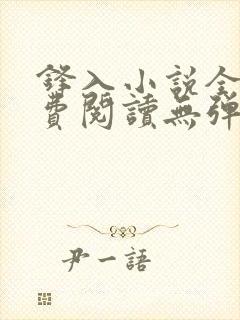 鋒入小說全
費閱讀無彈
尹一語